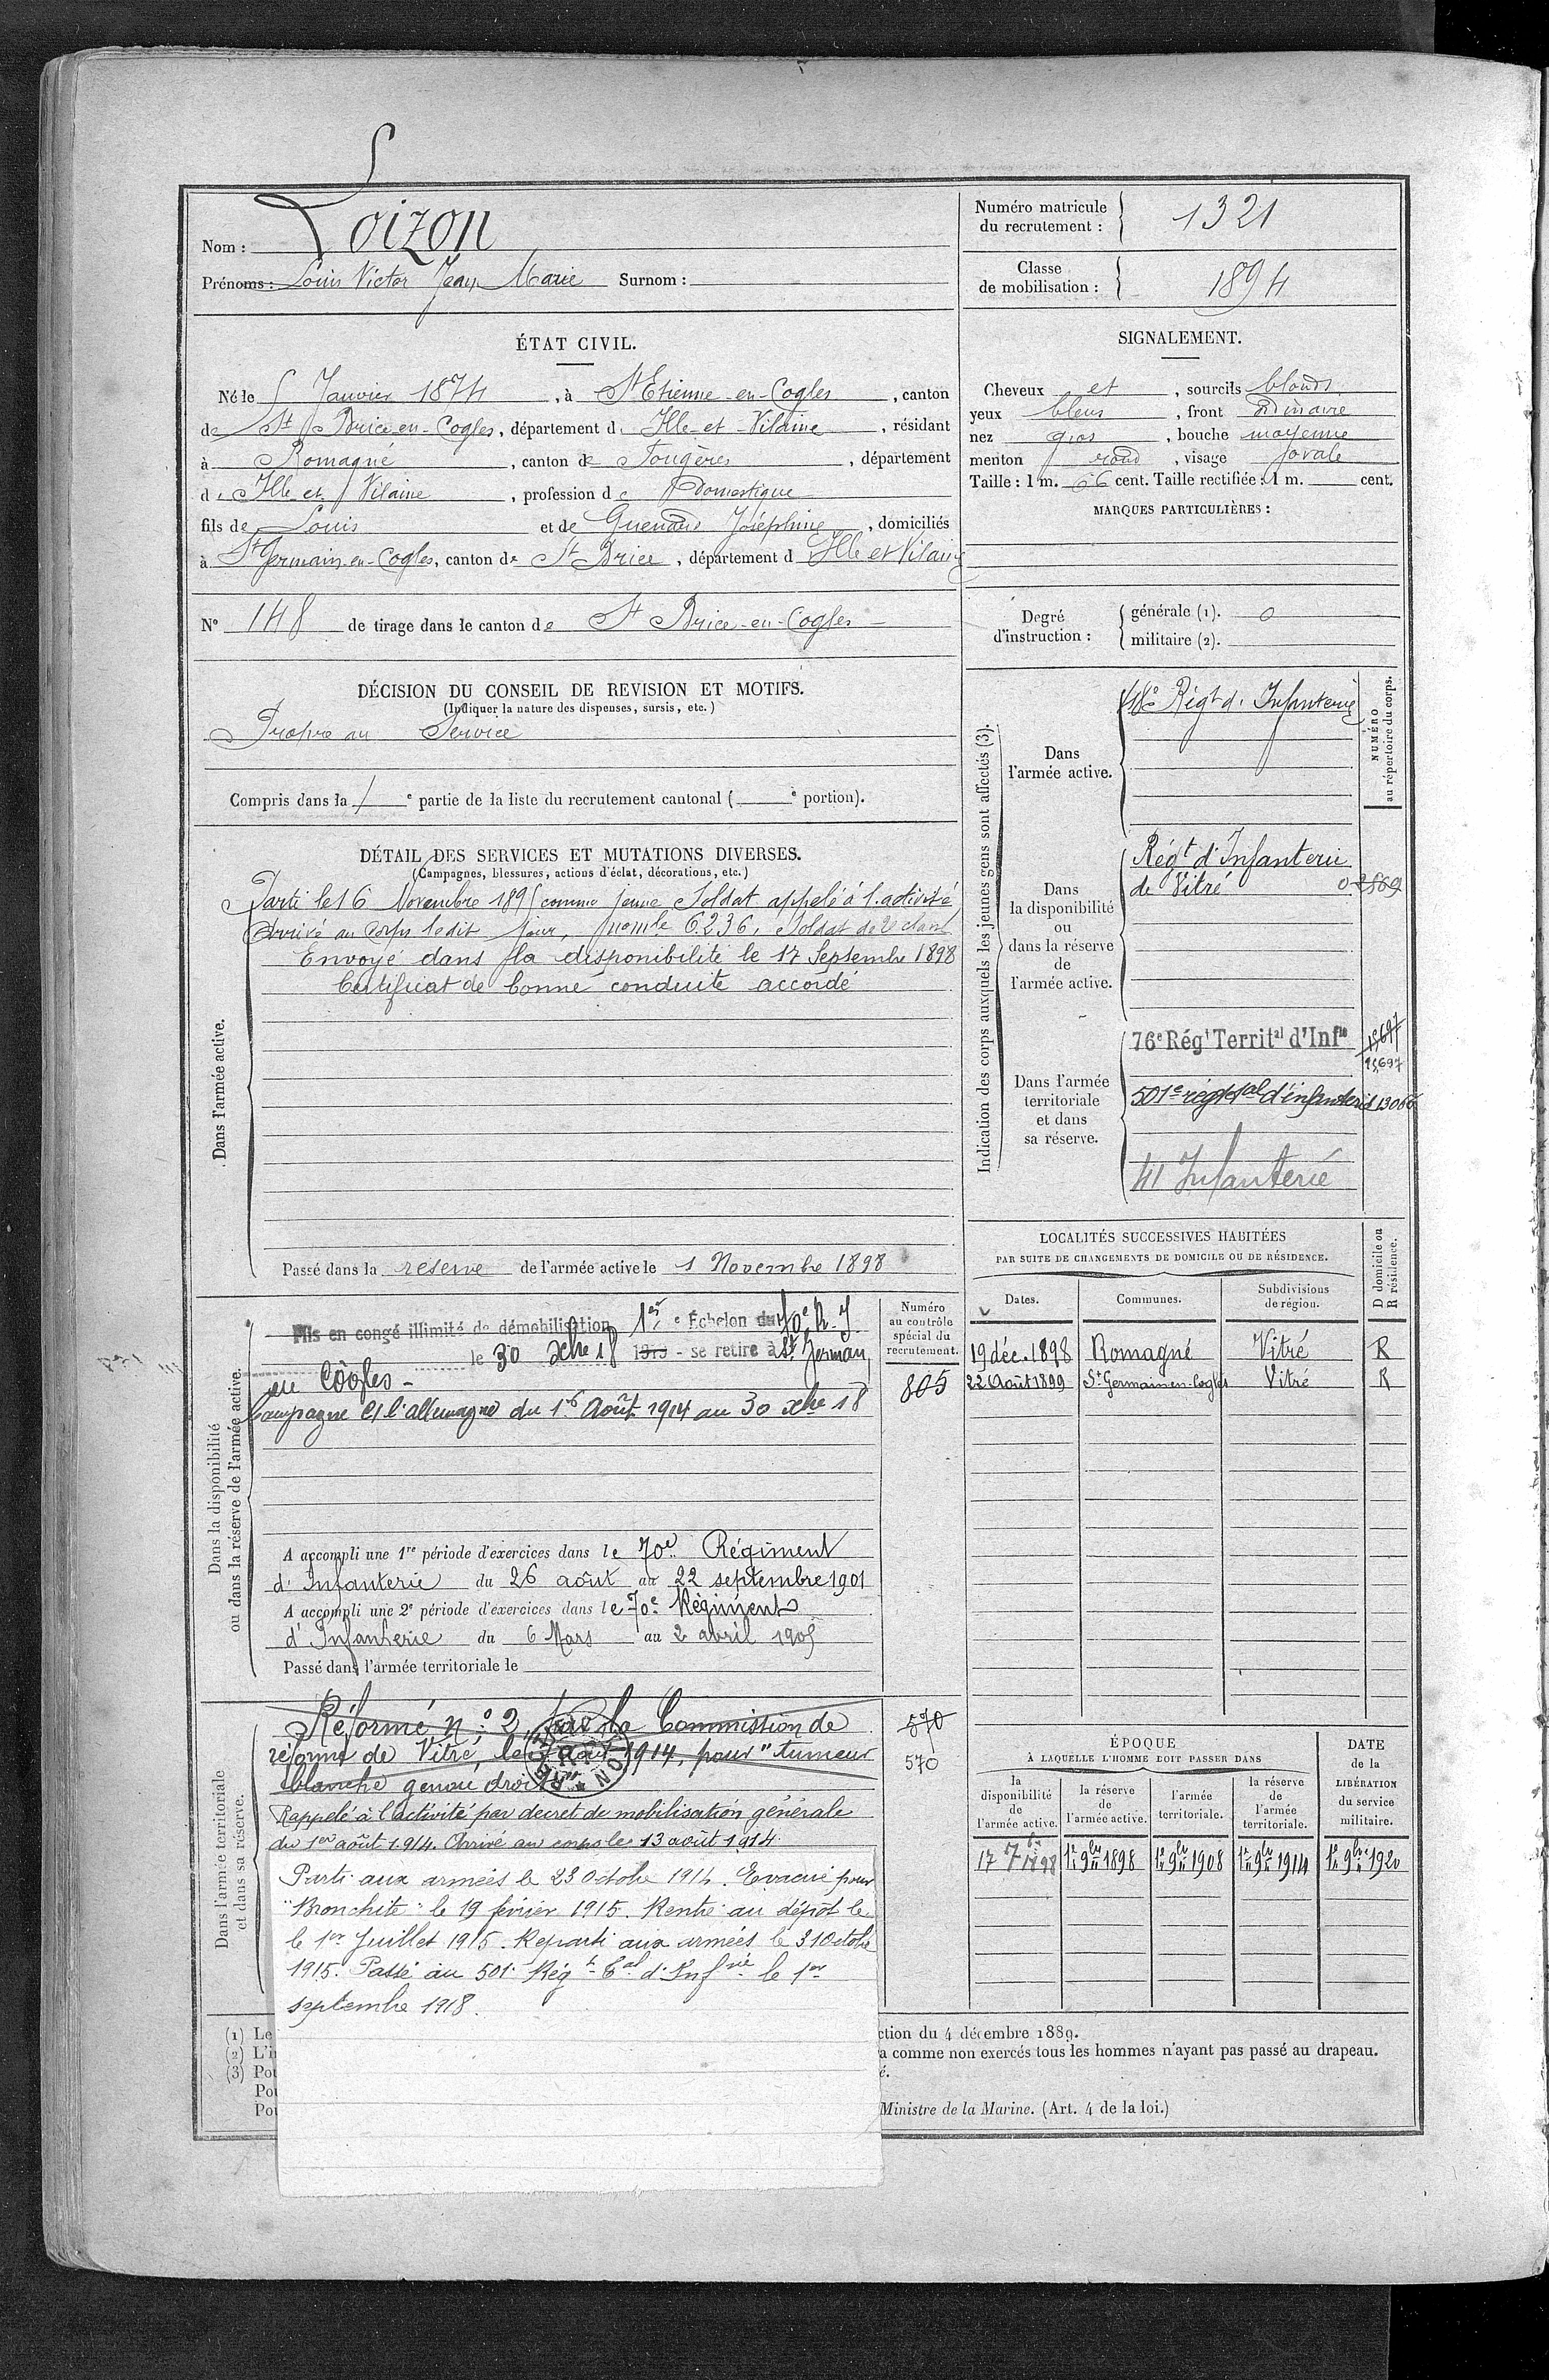 Nom : Loizon
Prénoms : Louis Victor Jean Marie Surnom :
Numéro matricule
du recrutement : 1321
Classe
de mobilisation : 1894
ÉTAT CIVIL.
Né le 5 Janvier 1874, à St Etienne-en-Cogles, canton
de St Brice-en-Cogles, département d. Ille-et-Vilaine, résidant
à Romagné, canton de Fougères, département
d. Ille et Vilaine, profession de Domestique
fils de Louis et de Guenaud Joséphine, domiciliés
à St Germain-en-Cogles, canton de St Brice, département d Ille et Vilaine
N° 148 de tirage dans le canton de St Brice-en-Cogles
SIGNALEMENT.
Cheveux et, sourcils blonds
yeux bleus, front ordinaire
nez gros, bouche moyenne
menton rond, visage ovale
Taille : 1 m. 66 cent. Taille rectifiée : 1 m. cent.
MARQUES PARTICULIÈRES :
Degré
d'instruction :
générale (1). 0
militaire (2).
DÉCISION DU CONSEIL DE REVISION ET MOTIFS.
(Indiquer la nature des dispenses, sursis, etc.)
Propre au Service
Compris dans la 1 e partie de la liste du recrutement cantonal ( e portion).
DÉTAIL DES SERVICES ET MUTATIONS DIVERSES.
(Campagnes, blessures, actions d'éclat, décorations, etc.)
Dans l'armée active.
Parti le 16 Novembre 1895 comme jeune Soldat appelé à l'activité
Arrivé au Corps ledit jour, 6.236, Soldat de 2e classe
Envoyé dans la disponibilité le 17 Septembre 1898
Certificat de bonne conduite accordé
Passé dans la réserve de l'armée active le 1 Novembre 1898
Indication des corps auxquels les jeunes gens sont affectés (3).
NUMÉRO
au répertoire du corps.
Dans
l'armée active.
48e Régt d'Infanterie
Dans
la disponibilité
ou
dans la réserve
de
l'armée active.
Régt d'Infanterie
de Vitré
Dans l'armée
territoriale
et dans
sa réserve.
76e Régt Territal d'Infie
15,697
15,697
501e régt tal d'infanterie 13066
41 Infanterie
LOCALITÉS SUCCESSIVES HABITÉES
PAR SUITE DE CHANGEMENTS DE DOMICILE OU DE RÉSIDENCE.
D domicile ou
R résidence.
Dates. Communes. Subdivisions
de région.
19 déc. 1898 Romagné Vitré R
22 Août 1899 St Germain-en-Cogles Vitré R
Dans la disponibilité
ou dans la réserve de l'armée active.
Numéro
au contrôle
spécial du
recrutement.
805
Mis en congé illimité de démobilisation 1er e Échelon du 70e R. I
le 30 Xbre 18 1919 - se retire à St Germain
en Côgles -
Campagne Ct l'allemagne du 1er Août 1914 au 30 xbre 18
A accompli une 1re période d'exercices dans le 70e Régiment
d'Infanterie du 26 août au 22 septembre 1901
A accompli une 2e période d'exercices dans le 70e Régiment
d'Infanterie du 6 Mars au 2 avril 1905
Passé dans l'armée territoriale le
Dans l'armée territoriale
et dans sa réserve.
Réformé n° 2, par la Commission de
réforme de Vitré, le août 1914, pour "tumeur
blanche genou droit"
570
570
Rappelé à l'activité par decret de mobilisation générale
du 1er août 1914. Arrivé au corps le 13 août 1914.
Parti aux armées le 23 Octobre 1914. Evacué pour
"Bronchite" le 19 février 1915. Rentré au dépôt le
le 1er Juillet 1915. Reparti aux armées le 31 Octobre
1915. Passé au 501e Régt tal d'Infrie le 1er
septembre 1918.
ÉPOQUE
À LAQUELLE L'HOMME DOIT PASSER DANS
DATE
de la
LIBÉRATION
du service
militaire.
la
disponibilité
de
l'armée active.
la réserve
de
l'armée active.
l'armée
territoriale.
la réserve
de
l'armée
territoriale.
17 7bre 1898 1er 9bre 1898 1er 9bre 1908 1er 9bre 1914 1er 9bre 1920
(1) Le
(2) L'i
(3) Pou
Pou
Pou
ction du 4 décembre 1889.
a comme non exercés tous les hommes n'ayant pas passé au drapeau.
é.
Ministre de la Marine. (Art. 4 de la loi.)